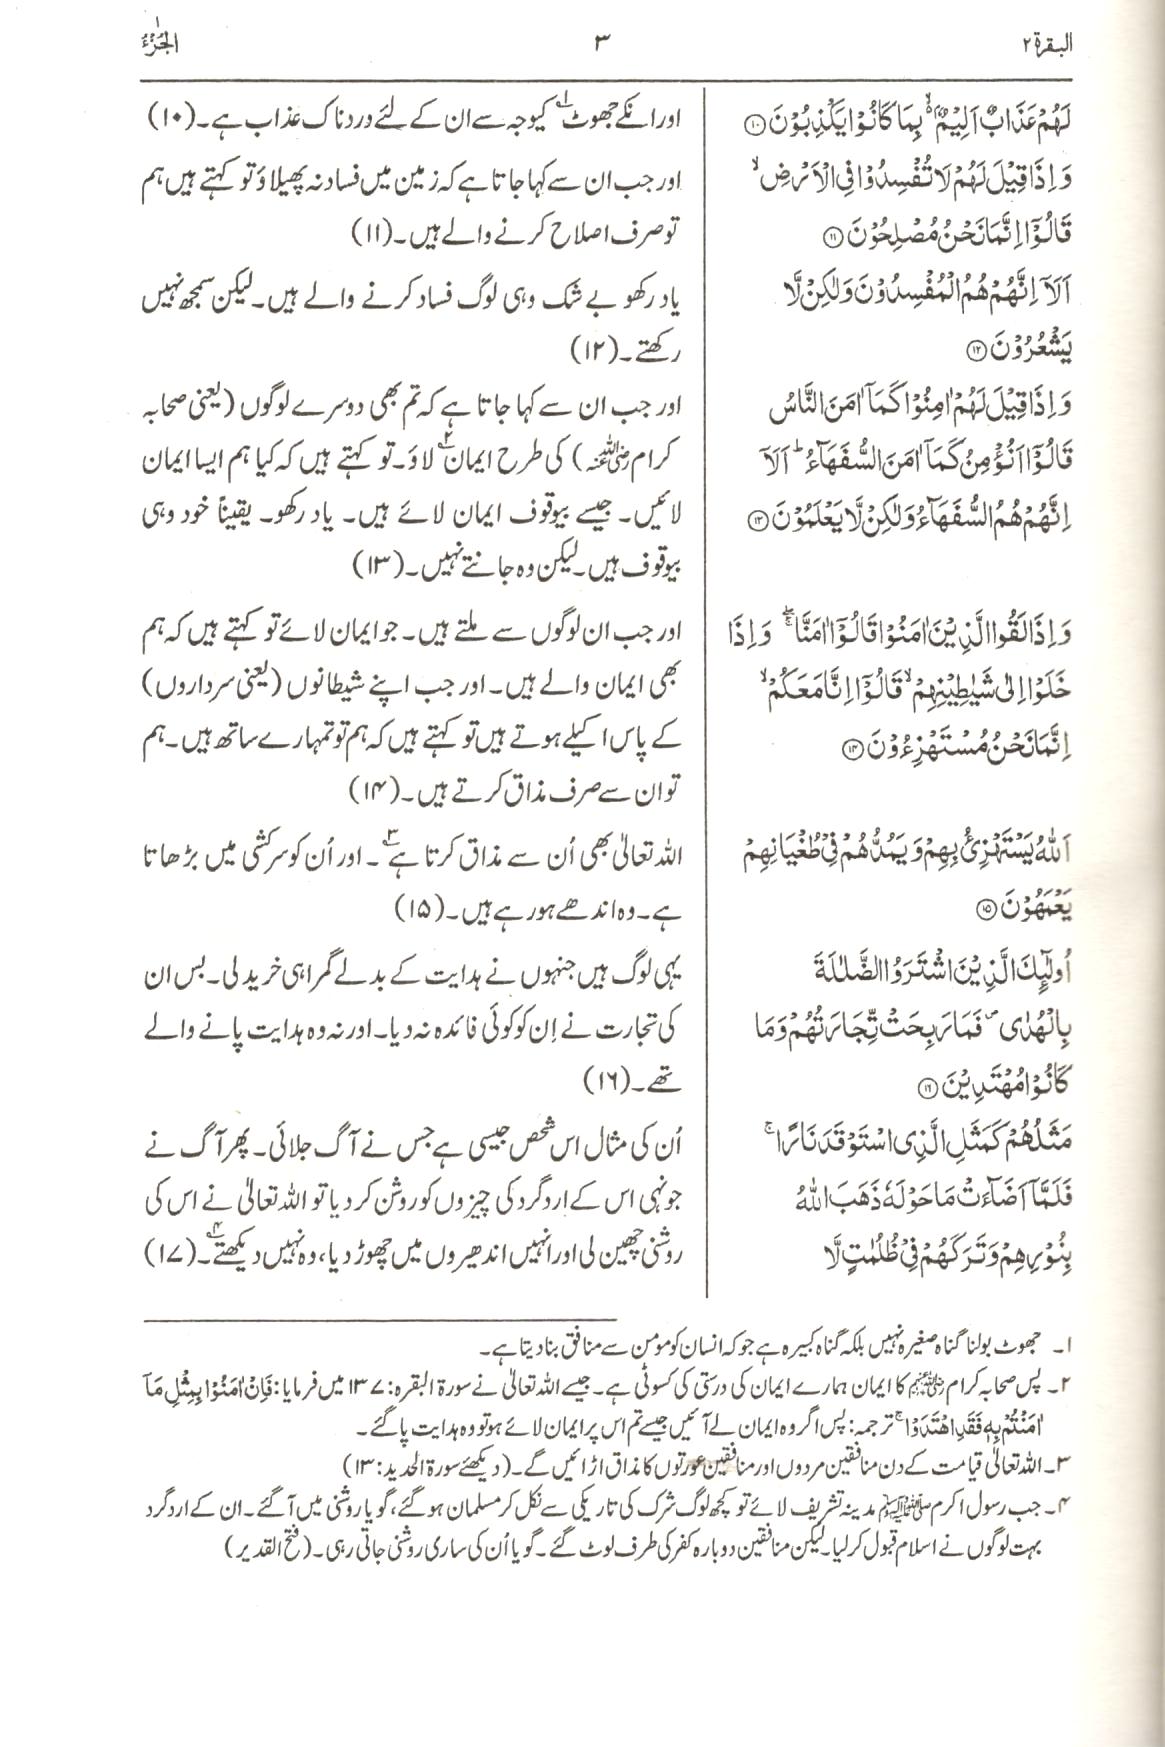 البقرة ۲
۳
الجزء ۱
لَهُمْ عَذَابٌ اَلِيْمٌۢ ۙ۬ بِمَا كَانُوْا يَكْذِبُوْنَ ۝۱۰
وَ اِذَا قِيْلَ لَهُمْ لَا تُفْسِدُوْا فِى الْاَرْضِ ۙ
قَالُوْۤا اِنَّمَا نَحْنُ مُصْلِحُوْنَ ۝۱۱
اَلَاۤ اِنَّهُمْ هُمُ الْمُفْسِدُوْنَ وَ لٰكِنْ لَّا
يَشْعُرُوْنَ ۝۱۲
وَ اِذَا قِيْلَ لَهُمْ اٰمِنُوْا كَمَاۤ اٰمَنَ النَّاسُ
قَالُوْۤا اَنُؤْمِنُ كَمَاۤ اٰمَنَ السُّفَهَآءُ ؕ اَلَاۤ
اِنَّهُمْ هُمُ السُّفَهَآءُ وَ لٰكِنْ لَّا يَعْلَمُوْنَ ۝۱۳
وَ اِذَا لَقُوا الَّذِيْنَ اٰمَنُوْا قَالُوْۤا اٰمَنَّا ۚۖ وَ اِذَا
خَلَوْا اِلٰى شَيٰطِيْنِهِمْ ۙ قَالُوْۤا اِنَّا مَعَكُمْ ۙ
اِنَّمَا نَحْنُ مُسْتَهْزِءُوْنَ ۝۱۴
اَللّٰهُ يَسْتَهْزِئُ بِهِمْ وَ يَمُدُّهُمْ فِىْ طُغْيَانِهِمْ
يَعْمَهُوْنَ ۝۱۵
اُولٰٓئِكَ الَّذِيْنَ اشْتَرَوُا الضَّلٰلَةَ
بِالْهُدٰى ۪ فَمَا رَبِحَتْ تِّجَارَتُهُمْ وَ مَا
كَانُوْا مُهْتَدِيْنَ ۝۱۶
مَثَلُهُمْ كَمَثَلِ الَّذِى اسْتَوْقَدَ نَارًا ۚ
فَلَمَّاۤ اَضَآءَتْ مَا حَوْلَهٗ ذَهَبَ اللّٰهُ
بِنُوْرِهِمْ وَ تَرَكَهُمْ فِىْ ظُلُمٰتٍ لَّا
اور انکے جھوٹ۱ کیوجہ سے ان کے لئے دردناک عذاب ہے۔(۱۰)
اور جب ان سے کہا جاتا ہے کہ زمین میں فساد نہ پھیلاؤ تو کہتے ہیں ہم
تو صرف اصلاح کرنے والے ہیں۔(۱۱)
یاد رکھو بے شک وہی لوگ فساد کرنے والے ہیں۔ لیکن سمجھ نہیں
رکھتے۔(۱۲)
اور جب ان سے کہا جاتا ہے کہ تم بھی دوسرے لوگوں (یعنی صحابہ
کرام رضی اللہ عنہم) کی طرح ایمان۲ لاؤ۔تو کہتے ہیں کہ کیا ہم ایسا ایمان
لائیں۔ جیسے بیوقوف ایمان لائے ہیں۔ یاد رکھو۔ یقیناً خود وہی
بیوقوف ہیں۔لیکن وہ جانتے نہیں۔(۱۳)
اور جب ان لوگوں سے ملتے ہیں۔ جو ایمان لائے تو کہتے ہیں کہ ہم
بھی ایمان والے ہیں۔ اور جب اپنے شیطانوں (یعنی سرداروں)
کے پاس اکیلے ہوتے ہیں تو کہتے ہیں کہ ہم تو تمہارے ساتھ ہیں۔ہم
تو ان سے صرف مذاق کرتے ہیں۔(۱۴)
اللہ تعالیٰ بھی اُن سے مذاق کرتا ہے۳۔ اور اُن کو سرکشی میں بڑھاتا
ہے۔وہ اندھے ہو رہے ہیں۔(۱۵)
یہی لوگ ہیں جنہوں نے ہدایت کے بدلے گمراہی خرید لی۔ بس ان
کی تجارت نے اِن کو کوئی فائدہ نہ دیا۔اور نہ وہ ہدایت پانے والے
تھے۔(۱۶)
اُن کی مثال اس شخص جیسی ہے جس نے آگ جلائی۔ پھر آگ نے
جونہی اس کے اردگرد کی چیزوں کو روشن کر دیا تو اللہ تعالیٰ نے اس کی
روشنی چھین لی اور انہیں اندھیروں میں چھوڑ دیا، وہ نہیں دیکھتے۴۔(۱۷)
۱۔ جھوٹ بولنا گناہ صغیرہ نہیں بلکہ گناہ کبیرہ ہے جو کہ انسان کو مومن سے منافق بنا دیتا ہے۔
۲۔ پس صحابہ کرام رضی اللہ عنہم کا ایمان ہمارے ایمان کی درستی کی کسوٹی ہے۔ جیسے اللہ تعالیٰ نے سورۃ البقرہ:۱۳۷ میں فرمایا: فَاِنْ اٰمَنُوْا بِمِثْلِ مَاۤ
اٰمَنْتُمْ بِهٖ فَقَدِ اهْتَدَوْا ۚ ترجمہ: پس اگر وہ ایمان لے آئیں جیسے تم اس پر ایمان لائے ہو تو وہ ہدایت پا گئے۔
۳۔ اللہ تعالیٰ قیامت کے دن منافقین مردوں اور منافقین عورتوں کا مذاق اڑائیں گے۔(دیکھئے سورۃ الحدید:۱۳)
۴۔ جب رسول اکرم ﷺ مدینہ تشریف لائے تو کچھ لوگ شرک کی تاریکی سے نکل کر مسلمان ہو گئے، گویا روشنی میں آ گئے۔ ان کے ارد گرد
بہت لوگوں نے اسلام قبول کر لیا۔ لیکن منافقین دوبارہ کفر کی طرف لوٹ گئے۔ گویا اُن کی ساری روشنی جاتی رہی۔(فتح القدیر)